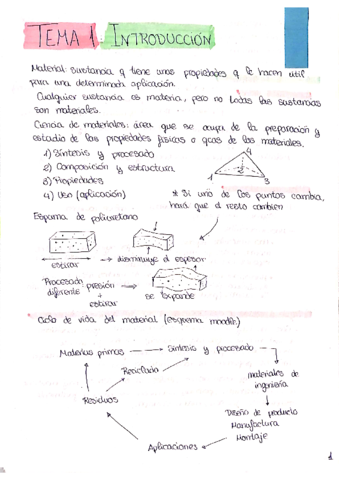 TEMA 1. INTRODUCCIÓN
Material: sustancia q tiene unas propiedades q le hacen útil
para una determinada aplicación.
Cualquier sustancia es materia, pero no todas las sustancias
son materiales.
Ciencia de materiales: área que se ocupa de la preparación y
estudio de las propiedades físicas o qcas de los materiales.
1) Síntesis y procesado
2) Composición y estructura
3) Propiedades
4) Uso (aplicación)
4
1
2
3
* Si uno de los puntos cambia,
hará que el resto cambien
Espuma de poliuretano
estirar
→ disminuye el espesor
Procesado
diferente
presión
+
estirar
se expande
Ciclo de vida del material (esquema moodle)
Materias primas → Síntesis y procesado
Reciclado
materiales de
ingeniería
Residuos
Diseño de producto
Manufactura
Montaje
Aplicaciones
1